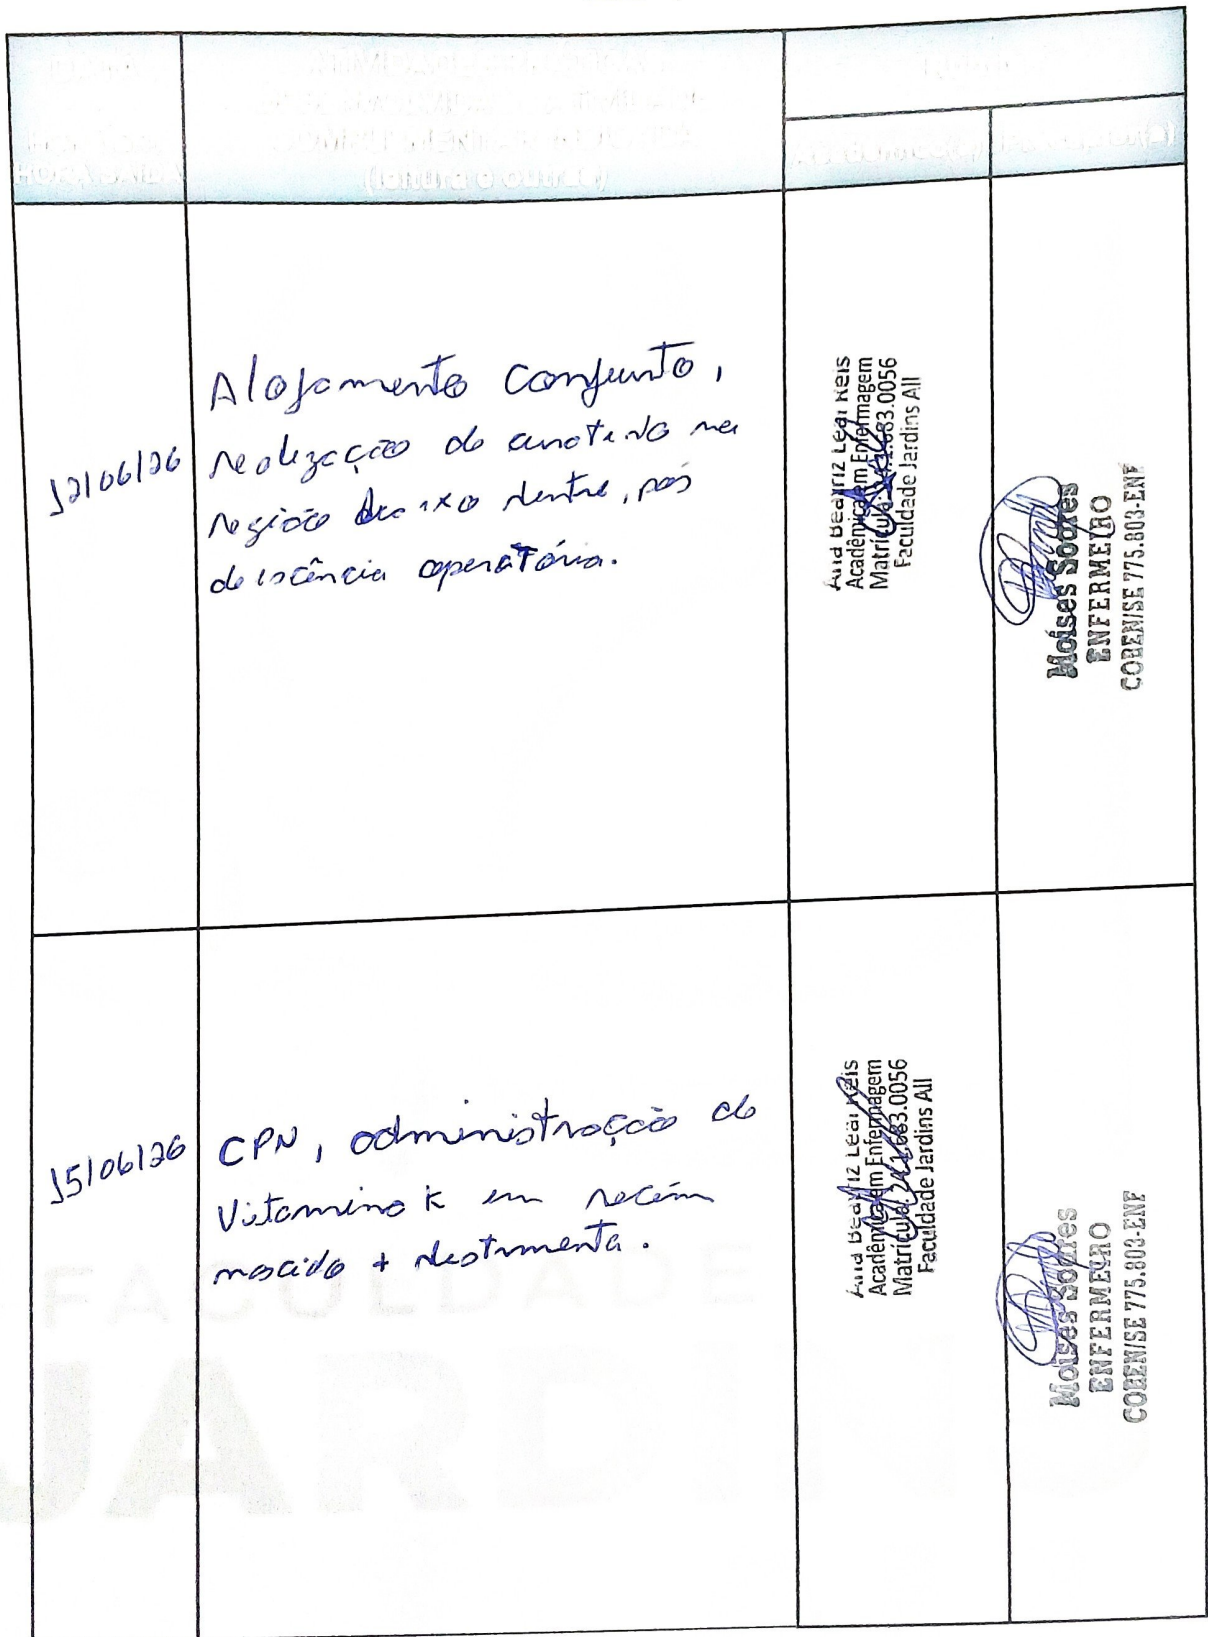 (leitura e outras)
12/06/26
Alojamento Conjunto,
realização de curativo na
região baixo ventre, pós
deiscência operatória.
Ana Beatriz Leal Reis
Acadêmica em Enfermagem
Faculdade Jardins All
Moises Soares
ENFERMEIRO
COREN/SE 775.803-ENF
15/06/26
CPN, administração de
Vitamina K em recém
nascido + vestimenta.
Ana Beatriz Leal Reis
Acadêmica em Enfermagem
Faculdade Jardins All
Moises Soares
ENFERMEIRO
COREN/SE 775.803-ENF
FACULDADE
JARDINS